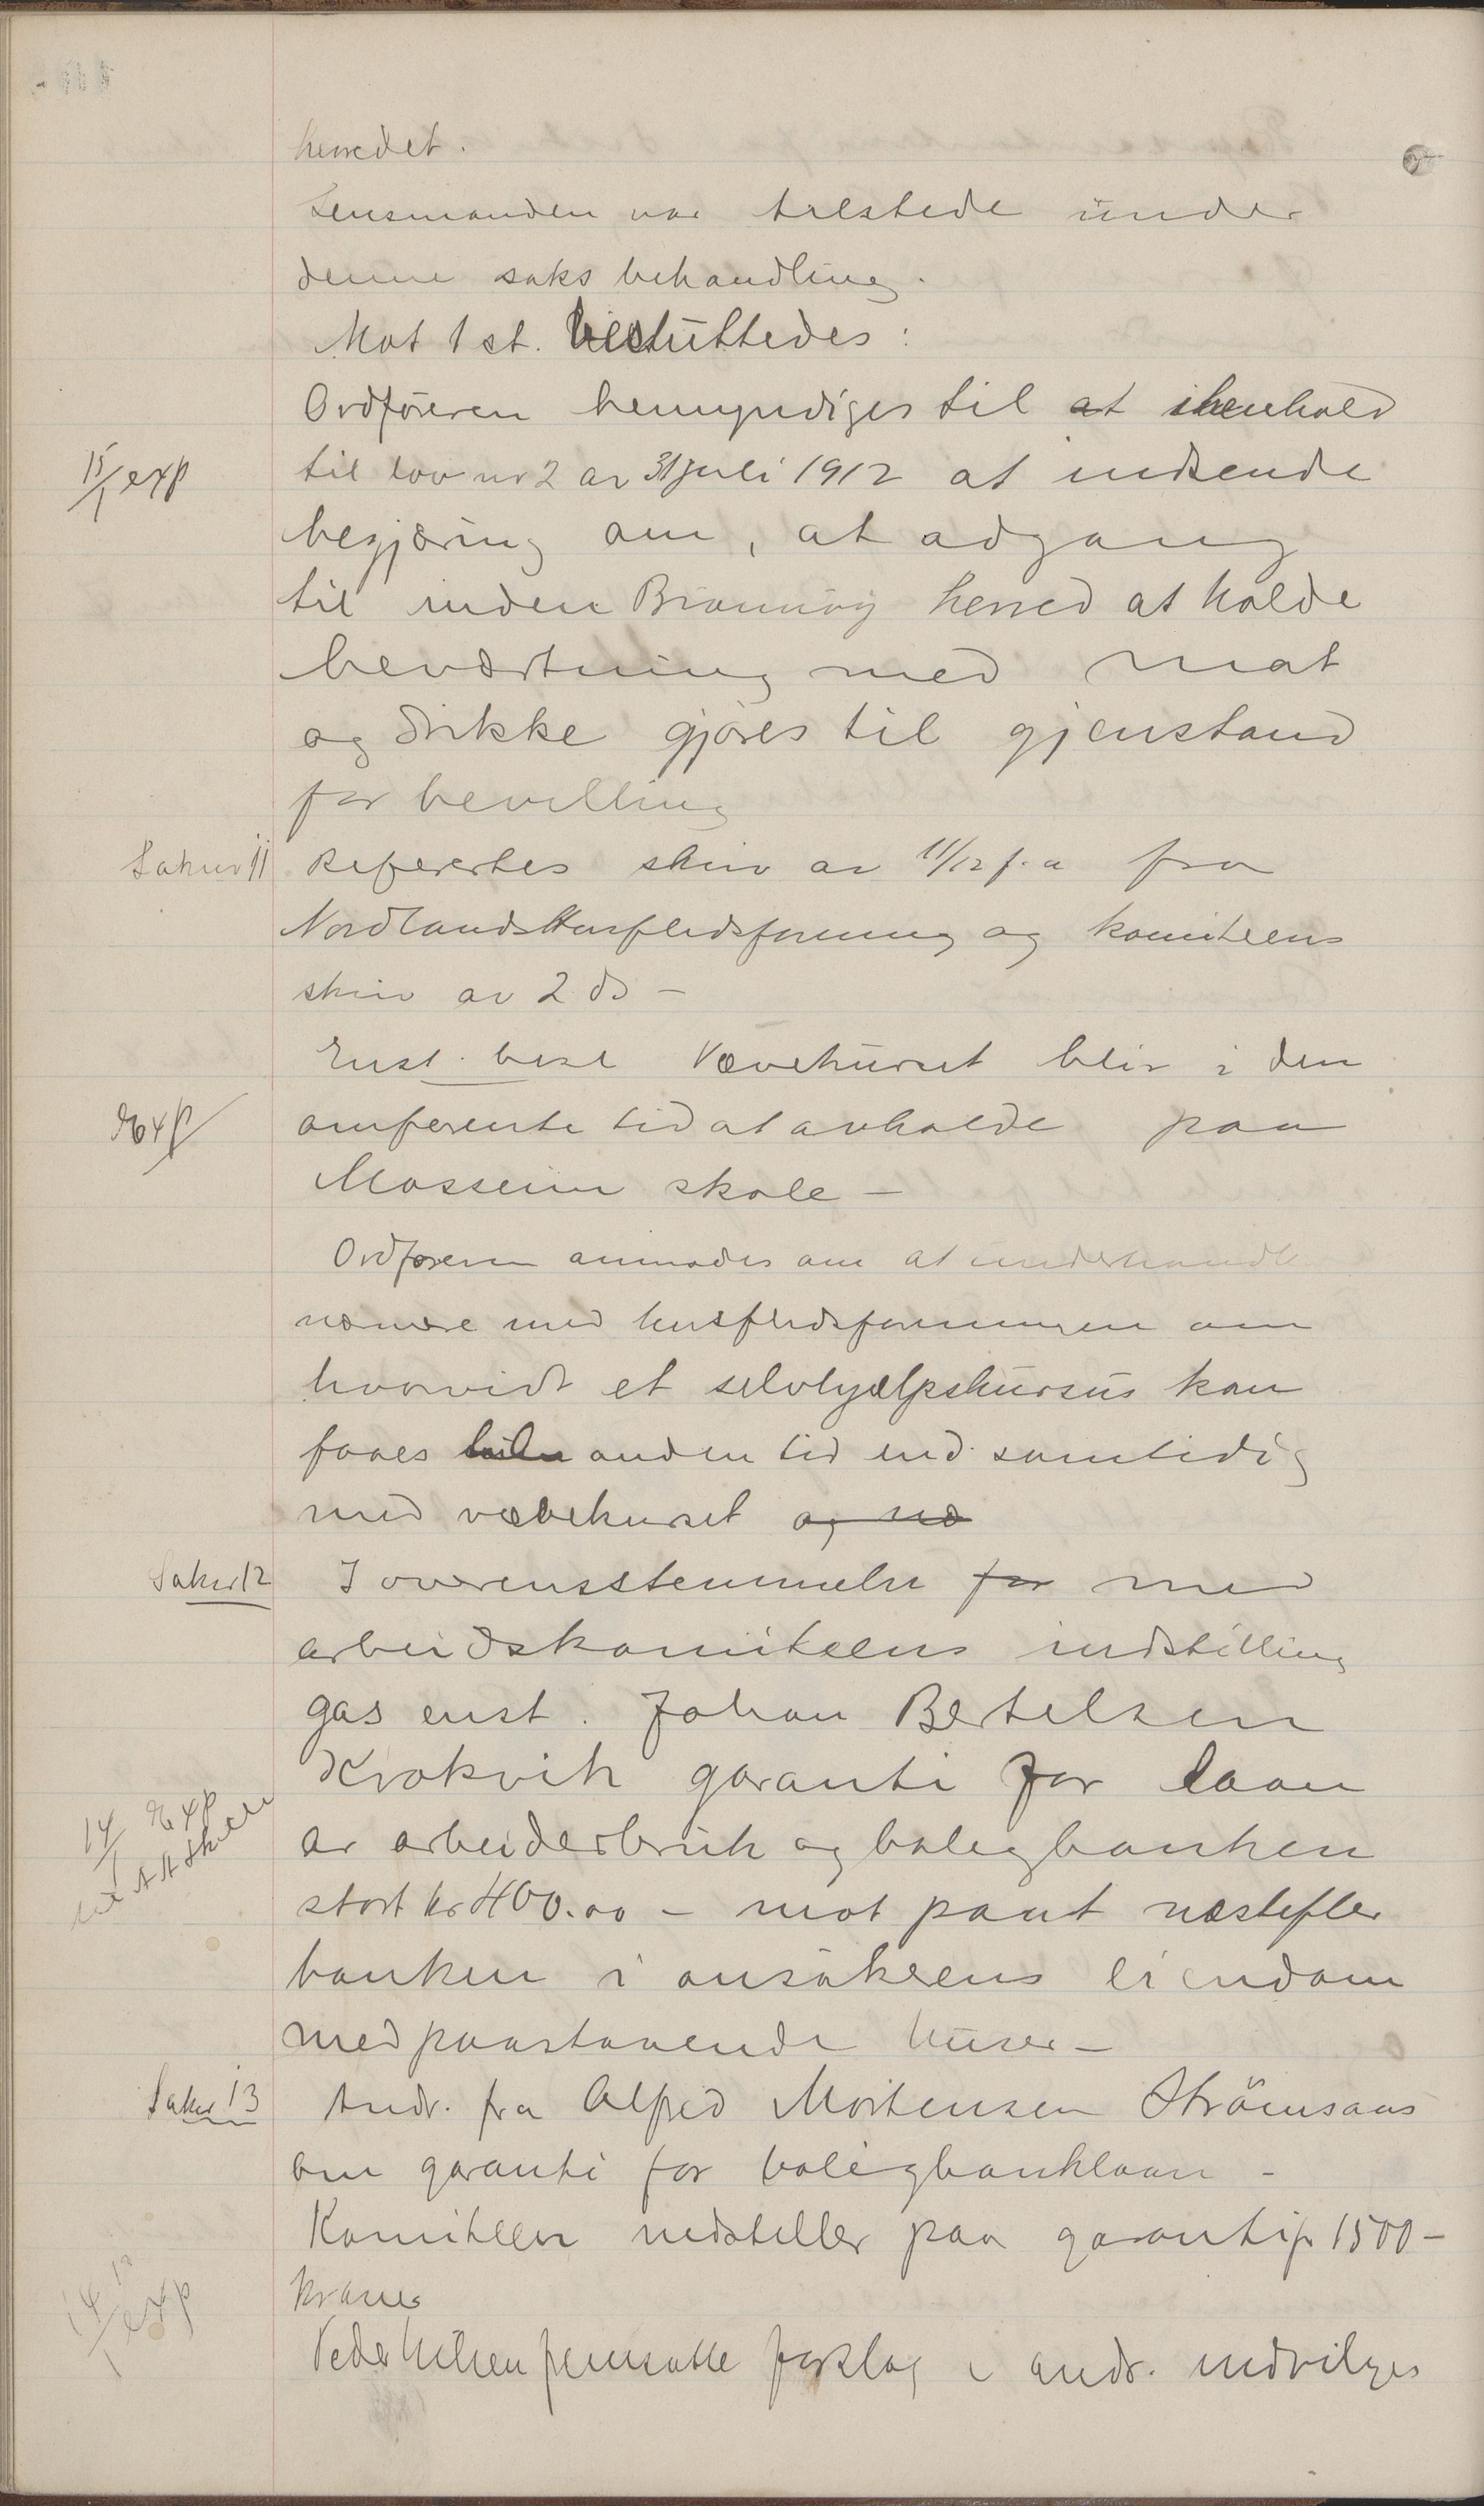 herredet.
Lensmanden var tilstede under
denne saks behandling.
Mot 1 st. besluttedes:
Ordføreren bemyndiges til at i henhold
15/1 exp
til lov nr 2 av 31 juli 1912 at indsende
begjæring om, at adgang
til inden Brønnøy herred at holde
beværtning med mat
og drikke gjøres til gjenstand
for bevilling
Sak nr 11 Referertes skriv av 11/12 f. a fra
Nordlands Husflidsforening og komiteens
skriv av 2 ds -
Enst. besl Vævekurset blir i den
Exp
omforente tid at avholde paa
Mosseim skole -
Ordføreren anmodes om at underhandle
nærmere med husflidsforeningen om
hvorvidt et selvhjælpskursus kan
faaes anden tid end samtidig
med vævekurset og næ
Sak nr 12 I overensstemmelse for med
arbeidskomiteens indstilling
gas enst. Johan Bertelsen
Krokvik garanti for laan
14/1 Exp
av arbeiderbruk og boligbanken
stort kr 400.00 - mot pant næstefter
banken i ansøkerens eiendom
med paastaaende huser -
Sak nr 13 Andr. fra Alfred Mortensen Strømsaas
om garanti for boligbanklaan -
Komiteen indstiller paa garanti fr 1500 -
kroner
14/1 exp
Peder Nilsen fremsatte forslag i andr. indvilges